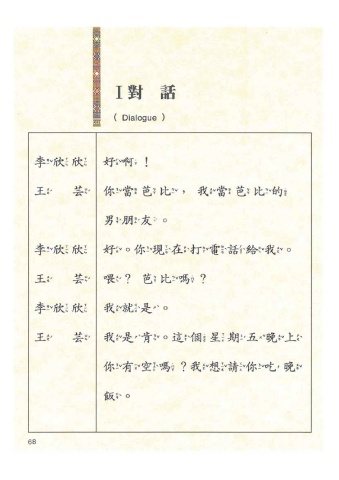 I 對 話
( Dialogue )
李欣欣 好啊！
王 芸 你當芭比，我當芭比的
男朋友。
李欣欣 好。你現在打電話給我。
王 芸 喂？芭比嗎？
李欣欣 我就是。
王 芸 我是肯。這個星期五晚上
你有空嗎？我想請你吃晚
飯。
68